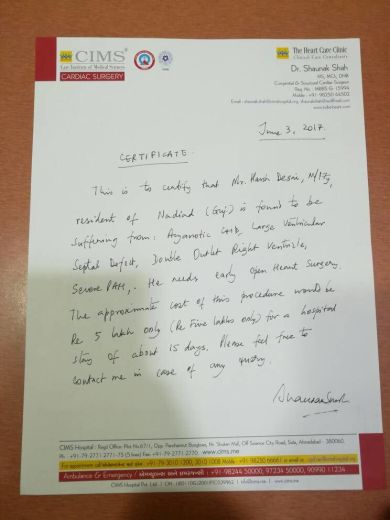 CIMS®
Care Institute of Medical Sciences
CARDIAC SURGERY
The Heart Care Clinic
Dr. Shaunak Shah
MS, MCh, DNB
Congenital & Structural Cardiac Surgeon
June 3, 2017.
CERTIFICATE.
This is to certify that Mr. Harsh Desai, M/17y,
resident of Nadiad (Guj) is found to be
suffering from: Acyanotic CHD, Large Ventricular
Septal Defect, Double Outlet Right Ventricle,
Severe PAH,. He needs early open Heart Surgery.
The approximate cost of this procedure would be
Rs 5 lakh only (Rs Five lakhs only) for a hospital
stay of about 15 days. Please feel free to
contact me in case of any query.
CIMS Hospital : Regd Office: Plot No.67/1, Opp. Panchamrut Bunglows, Nr. Shukan Mall, Off Science City Road, Sola, Ahmedabad - 380060.
Ph. : +91-79-2771 2771-75 (5 lines) Fax: +91-79-2771 2770 www.cims.me
For appointment call
+91-79-3010 1200, 3010 1008 Mobile
Ambulance & Emergency
+91-98244 50000, 97234 50000, 90990 11234
CIMS Hospital Pvt. Ltd.
info@cims.me
www.cims.me